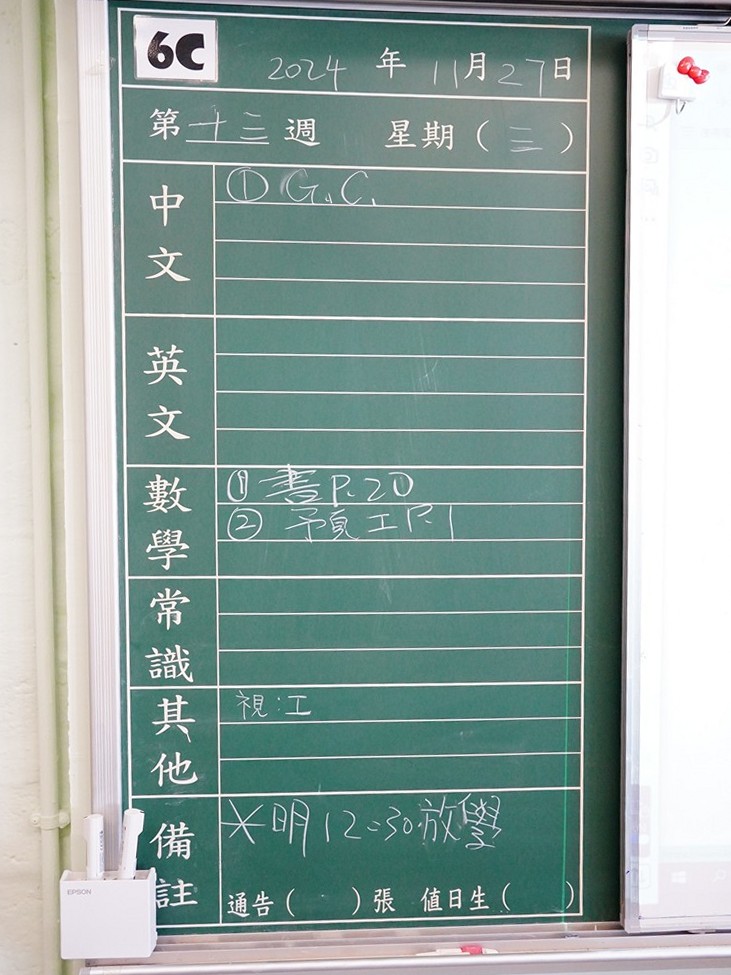 6C
2024 年 11月27日
第十三週 星期（三）
中文
① G.C.
英文
數學
① 書 P.20
② 預工 P.1
常識
其他
視：工
備註
*明12:30放學
通告（ ）張 值日生（ ）
EPSON